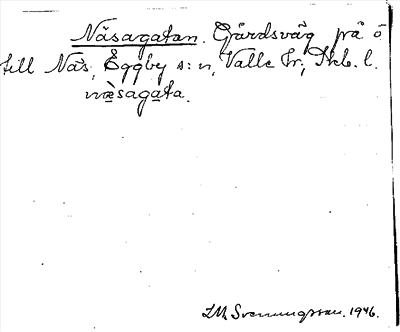 Näsagatan. Gårdsväg på ö
till Näs, Eggby s:n, Valle hr, Skb. l.
næ̀sagata.
I.M. Svenungsson. 1946.